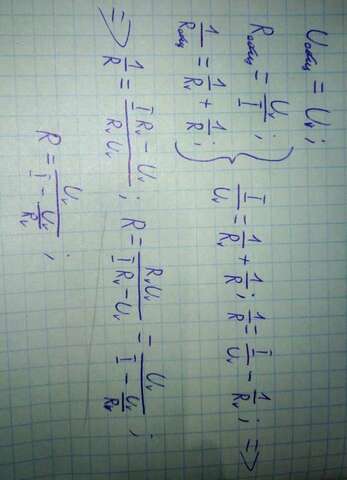 Uобщ = Uv;
Rобщ = Uv/I;
1/Rобщ = 1/Rv + 1/R;
} I/Uv = 1/Rv + 1/R; 1/R = I/Uv - 1/Rv; =>
=> 1/R = (I Rv - Uv)/(Rv Uv); R = Rv Uv/(I Rv - Uv) = Uv/(I - Uv/Rv);
R = Uv/(I - Uv/Rv);